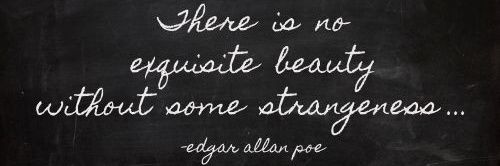 There is no
exquisite beauty
without some strangeness...
-edgar allan poe